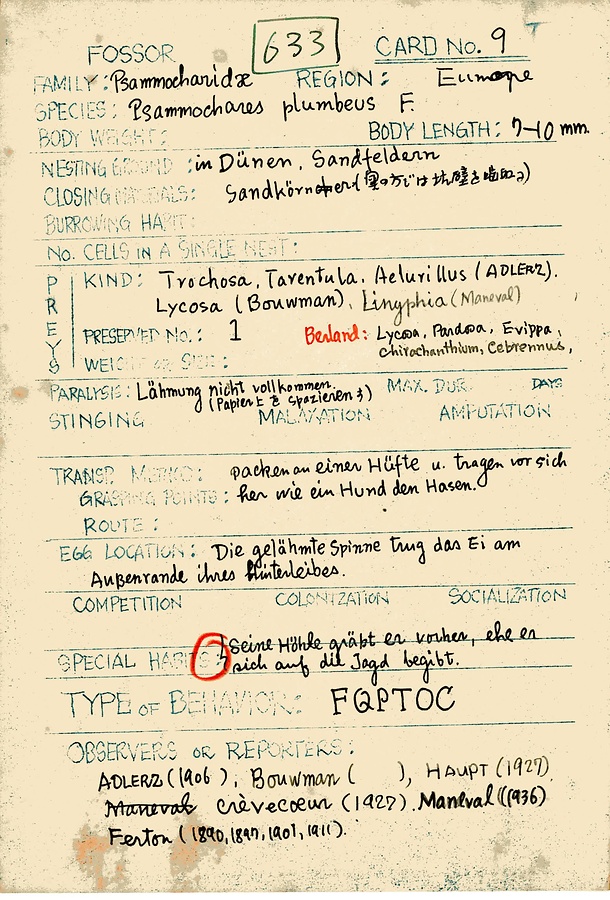 633
FOSSOR CARD No. 9
FAMILY: Psammocharidæ REGION: Europe
SPECIES: Psammochares plumbeus F.
BODY WEIGHT: BODY LENGTH: 7-10 mm.
NESTING GROUND: in Dünen, Sandfeldern
CLOSING MATERIALS: Sandkörnchen (奥の方では坑壁を)
BURROWING HABIT:
No. CELLS IN A SINGLE NEST:
PREYS
KIND: Trochosa, Tarentula, Aelurillus (ADLERZ).
Lycosa (Bouwman), Linyphia (Maneval)
PRESERVED No.: 1 Berland: Lycosa, Pardosa, Evippa,
WEIGHT OR SIZE: Chirachanthium, Cebrennus,
PARALYSIS: Lähmung nicht vollkommen. MAX. DUR. DAYS
(Papier上を spazierenす)
STINGING MALAXATION AMPUTATION
TRANSP. METHOD: packen an einer Hüfte u. tragen vor sich
GRASPING POINTS: her wie ein Hund den Hasen.
ROUTE:
EGG LOCATION: Die gelähmte Spinne trug das Ei am
Außenrande ihres Hinterleibes.
COMPETITION COLONIZATION SOCIALIZATION
Seine Höhle gräbt er vorher, ehe er
SPECIAL HABITS: sich auf die Jagd begibt.
TYPE OF BEHAVIOR: FQPTOC
OBSERVERS OR REPORTERS:
ADLERZ (1906), Bouwman ( ), HAUPT (1927)
Maneval Crèvecœur (1927). Maneval (1936)
Ferton (1890, 1897, 1901, 1911).